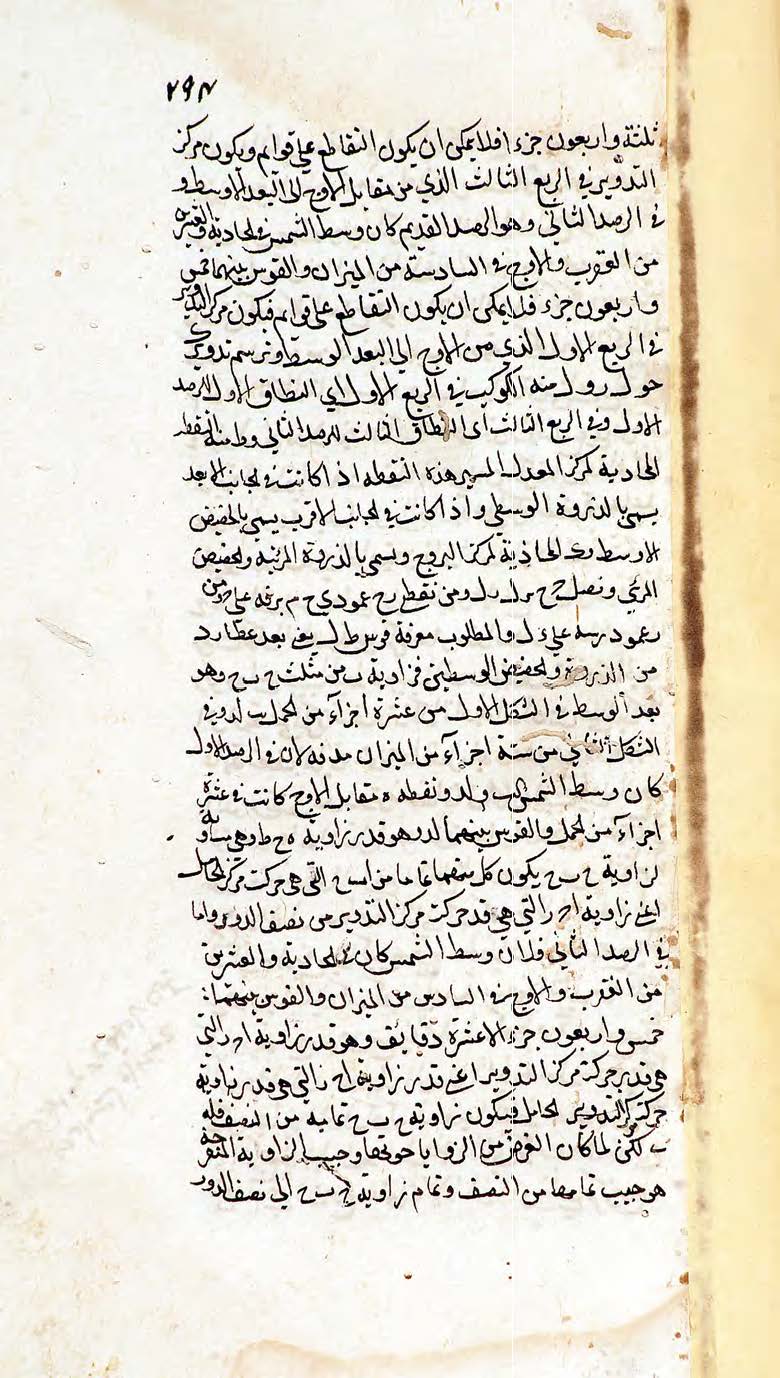 ٢٩٧
ثلثة واربعون جزءا فلا يمكن ان يكون التقاطع على قوائم ويكون مركز
التدوير في الربع الثالث الذي من مقابل الاوج الى البعد الاوسط و
في الرصد الثاني وهو الرصد القديم كان وسط الشمس في الحادية والعشرين
من العقرب والاوج في السادسة من الميزان والقوس بينهما خمس
واربعون جزء فلا يمكن ان يكون التقاطع على قوائم فيكون مركز التدوير
في الربع الاول الذي من الاوج الى البعد الاوسط ونرسم تدوير
حول منه الكوكب في الربع الاول اي النطاق الاول للرصد
الاول وفي الربع الثالث اى النطاق الثالث للرصد الثاني وط منه النقطة
المحاذية لمركز المعدل المسير هذه النقطه اذا كانت في الجانب الابعد
يسمى بالذروة الوسطى واذا كانت في الجانب الاقرب يسمى بالحضيض
الاوسط و المحاذية لمركز البروج ويسمى بالذروة المرئية والحضيض
المرئي ونصل ومن نقطع عمودي ح م على
وعمود على ل والمطلوب معرفة قوس ط ل يعنى بعد عطارد
من الذروة والحضيض الوسطين فزاوية ب من مثلث ح ب ح وهو
بعد الوسط في الشكل الاول من عشرة اجزآء من الحمل وفي
الشكل الثاني من ستة اجزآء من الميزان لان في الرصد الاول
كان وسط الشمس ونقطه ه مقابل الاوج كانت في عشرة
اجزآء من الحمل والقوس بينهما لدو هو قدر زاوية ه ح ط وهي مساوية
لزاوية ح ب ح يكون كل منهما تماما من التي هي حركت مركز الحامل
اعني زاوية التي هي قدر حركت مركز التدوير من نصف الدور واما
في الرصد الثاني فلان وسط الشمس كان في الحادية والعشرين
من العقرب والاوج في السادس من الميزان والقوس بينهما
خمس واربعون جزء الا عشرة دقايق وهو قدر زاوية التي
هي قدر حركت مركز التدوير اعنى قدر زاوية التي هي قدر زاوية
حركت مركز التدوير الحامل فيكون زاوية ح ب ح تمامه من النصف
لكن لما كان الغرض من الزوايا وجيب الزاوية المنفرجة
هو جيب تمامها من النصف وتمام زاوية ح ب ح الى نصف الدور